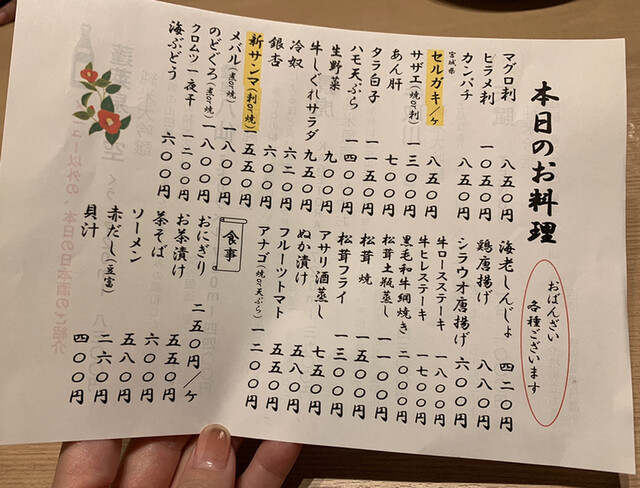 本日のお料理
おばんざい
各種ございます
マグロ刺 八五〇円
ヒラメ刺 一〇五〇円
カンパチ 八五〇円
宮城県
セルガキ/ヶ 八五〇円
サザエ(焼or刺) 一三〇〇円
あん肝 七〇〇円
タラ白子 一一五〇円
ハモ天ぷら 一四〇〇円
生野菜 九〇〇円
牛しぐれサラダ 九五〇円
冷奴 六二〇円
銀杏 六〇〇円
新サンマ(刺or焼) 五五〇円
メバル(煮or焼) 一八〇〇円
のどぐろ(煮or焼) 一八〇〇円
クロムツ一夜干 一二〇〇円
海ぶどう 六〇〇円
海老しんじょ 四二〇円
鶏唐揚げ 八八〇円
シラウオ唐揚げ 六〇〇円
牛ロースステーキ 一八〇〇円
牛ヒレステーキ 一七〇〇円
黒毛和牛網焼き 二〇〇〇円
松茸土瓶蒸し 一一〇〇円
松茸焼 一一〇〇円
松茸フライ 一三〇〇円
アサリ酒蒸し 七五〇円
ぬか漬け 五五〇円
フルーツトマト 五五〇円
アナゴ(焼or天ぷら) 一二〇〇円
食事
おにぎり 二五〇円/ヶ
お茶漬け 五五〇円
茶そば 六〇〇円
ソーメン 五八〇円
赤だし(豆富) 二六〇円
貝汁 四〇〇円